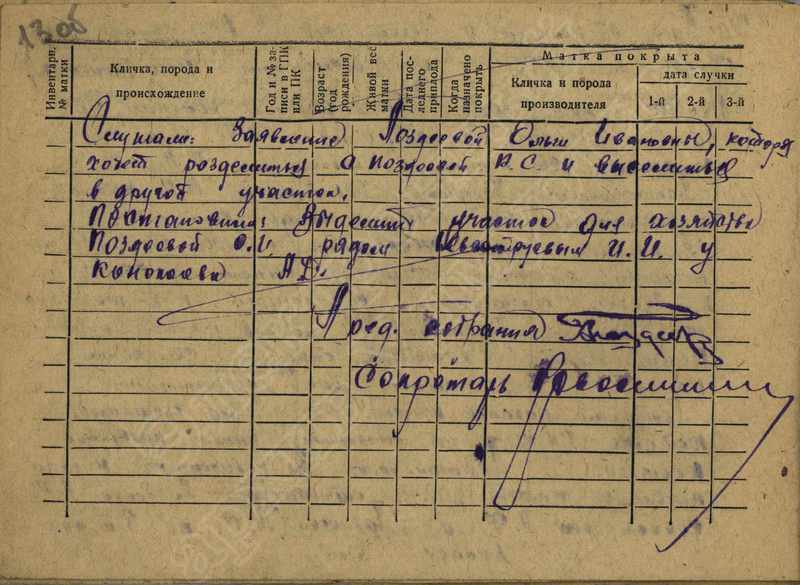 13об
Инвентарн. № матки
Кличка, порода и происхождение
Год и № записи в ГПК или ПК
Возраст (год рождения)
Живой вес матки
Дата последнего приплода
Когда назначено покрыть
Матка покрыта
Кличка и порода производителя
дата случки
1-й 2-й 3-й
Слушали: Заявление Поздеевой Ольги Ивановны, которая
хочет разделиться с Поздеевой К.С. и выселиться
в другой участок.
Постановили: Выделить участок для хозяйства
Поздеевой О.И. рядом И.И. у
А.Г.
Пред. собрания
Секретарь